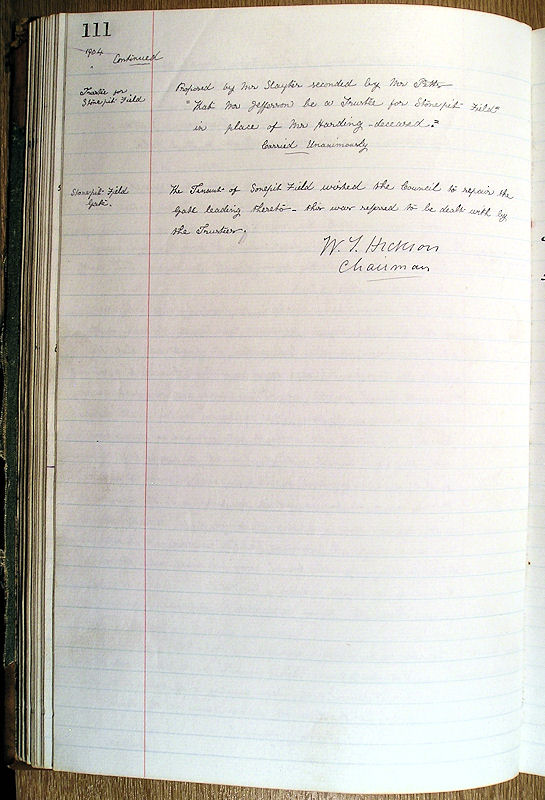 111
1904
" Continued
Trustee for
Stonepit Field
Proposed by Mr Slayter seconded by Mr Pitts
"That Mr Jefferson be a Trustee for Stonepit Field"
in place of Mr Harding - deceased."
Carried Unanimously
Stonepit Field
Gate.
The Tenant of Sonepit Field wished the Council to repair the
Gate leading thereto - this was referred to be dealt with by
the Trustees.
W. T. Hickson
Chairman